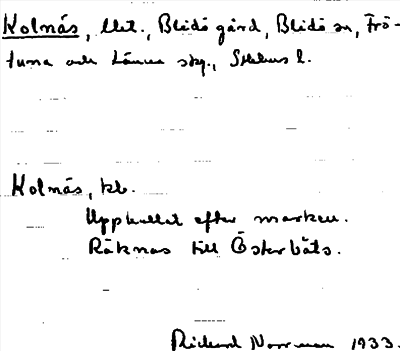 Kolnäs, lht., Blidö gård, Blidö sn, Frö-
tuna och Länna skg., Sthlms l.
Kolnäs, tb.
Uppkallat efter marken.
Räknas till Österbåts.
Richard Norrman 1933.